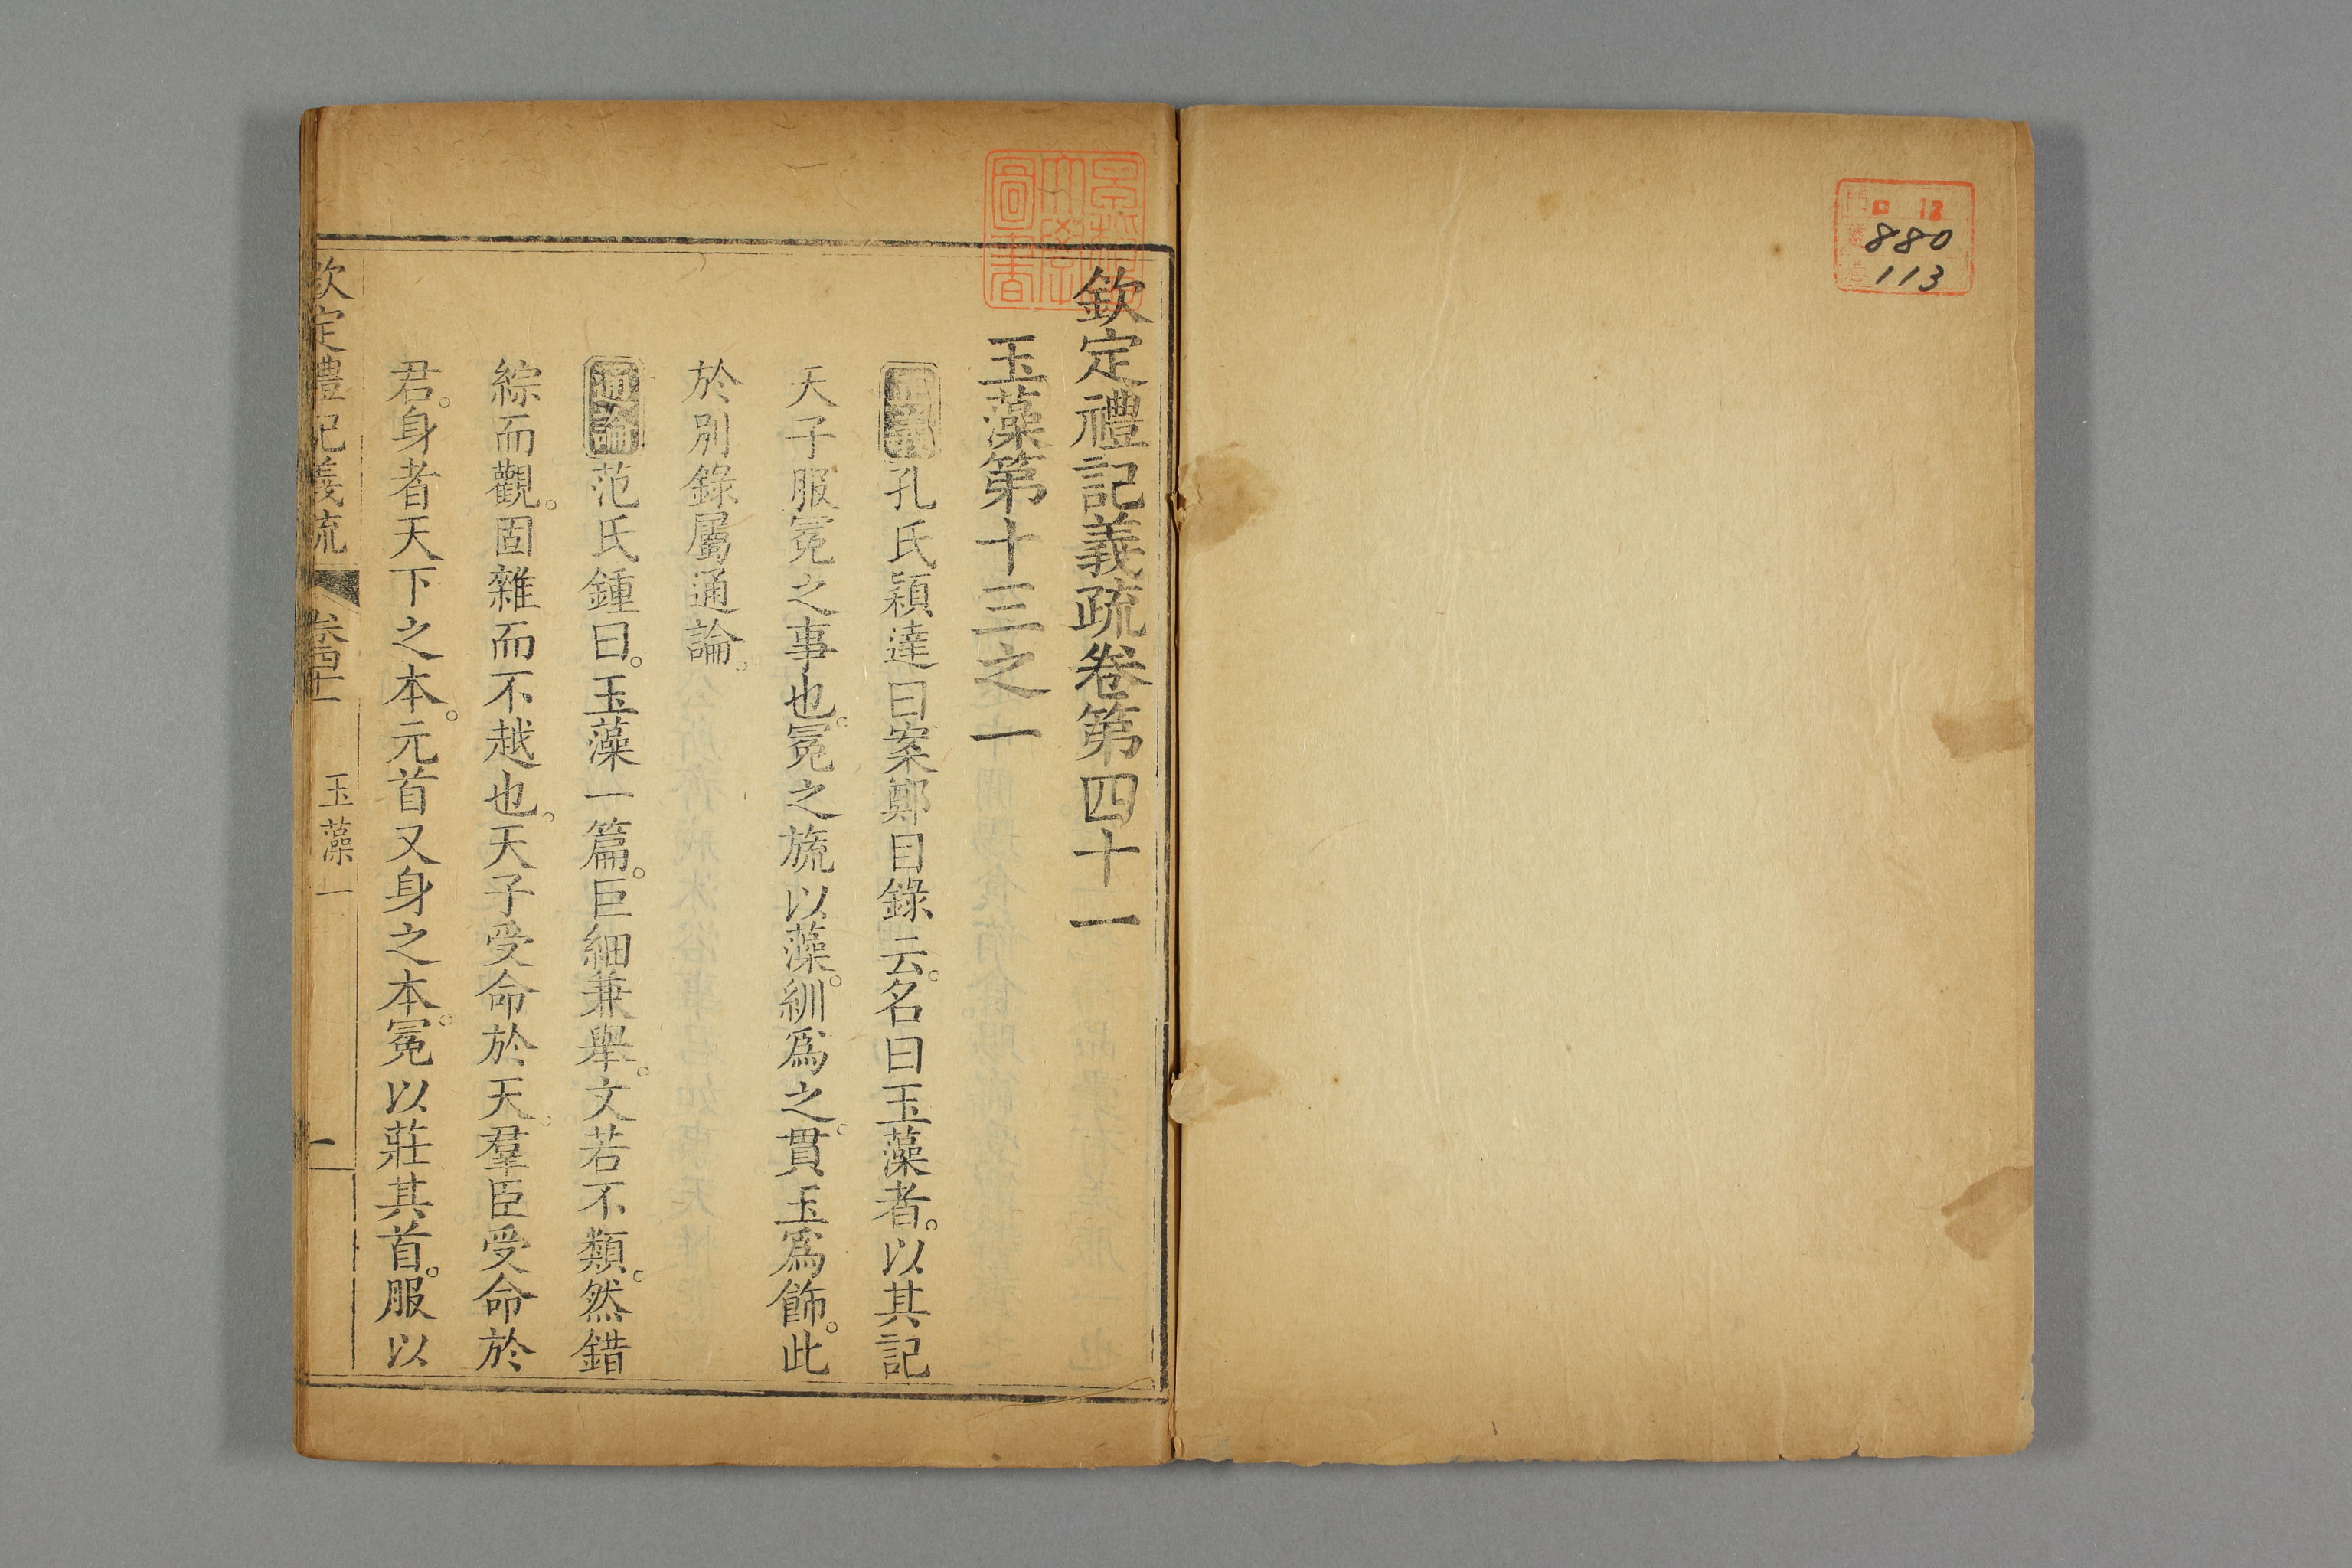 門 ロ 12
號 880
卷 113
欽定禮記義疏卷第四十一
玉藻第十三之一
正義孔氏穎達曰案鄭目錄云。名曰玉藻者。以其記
天子服冕之事也。冕之旒以藻。紃爲之。貫玉爲飾。此
於別錄屬通論。
通論范氏鍾曰。玉藻一篇。巨細兼舉。文若不類。然錯
綜而觀。固雜而不越也。天子受命於天。羣臣受命於
君。身者天下之本。元首又身之本。冕以莊其首。服以
欽定禮記義疏 卷四十一 玉藻一 一